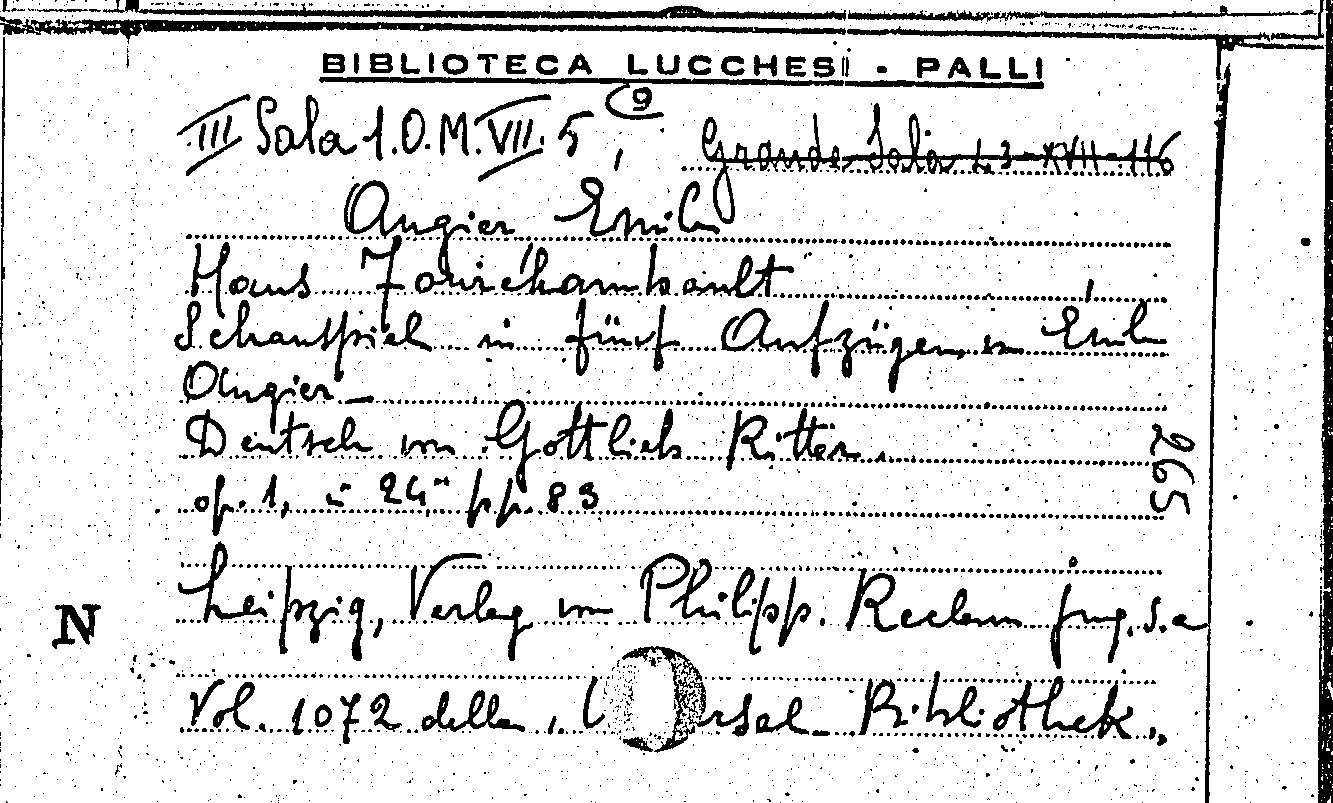 BIBLIOTECA LUCCHESI - PALLI
III Sala 1.O.M.VII.5, 9 Grande Sala L3-XVII-116
Augier Emile
Haus Fourchambault
Schauspiel in fünf Aufzügen von Emile
Augier_
Deutsch von Gottlieb Ritter.
op. 1, in 24° pp. 83
265
Leipzig, Verlag von Philipp. Reclam jung. s.a
N
Vol. 1072 della "U rsal Bibliothek"